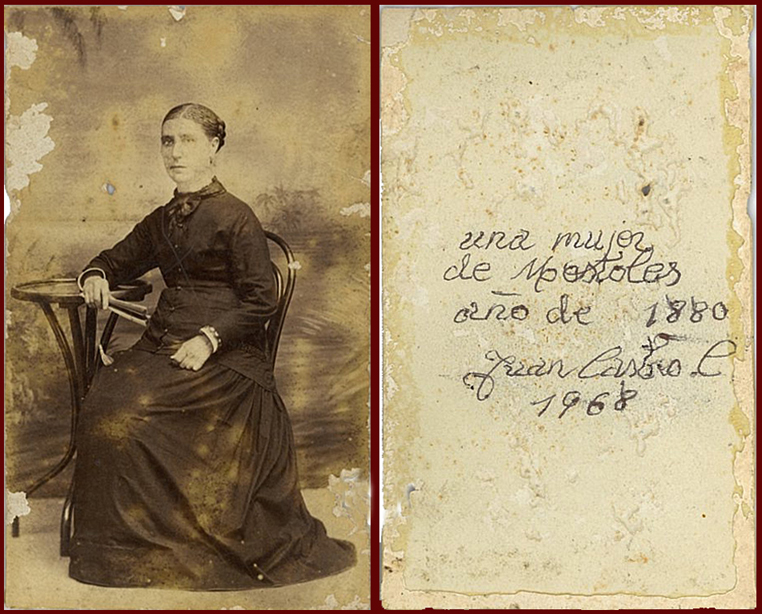 una mujer
de Mostoles
año de 1880
Juan Castro C
1968